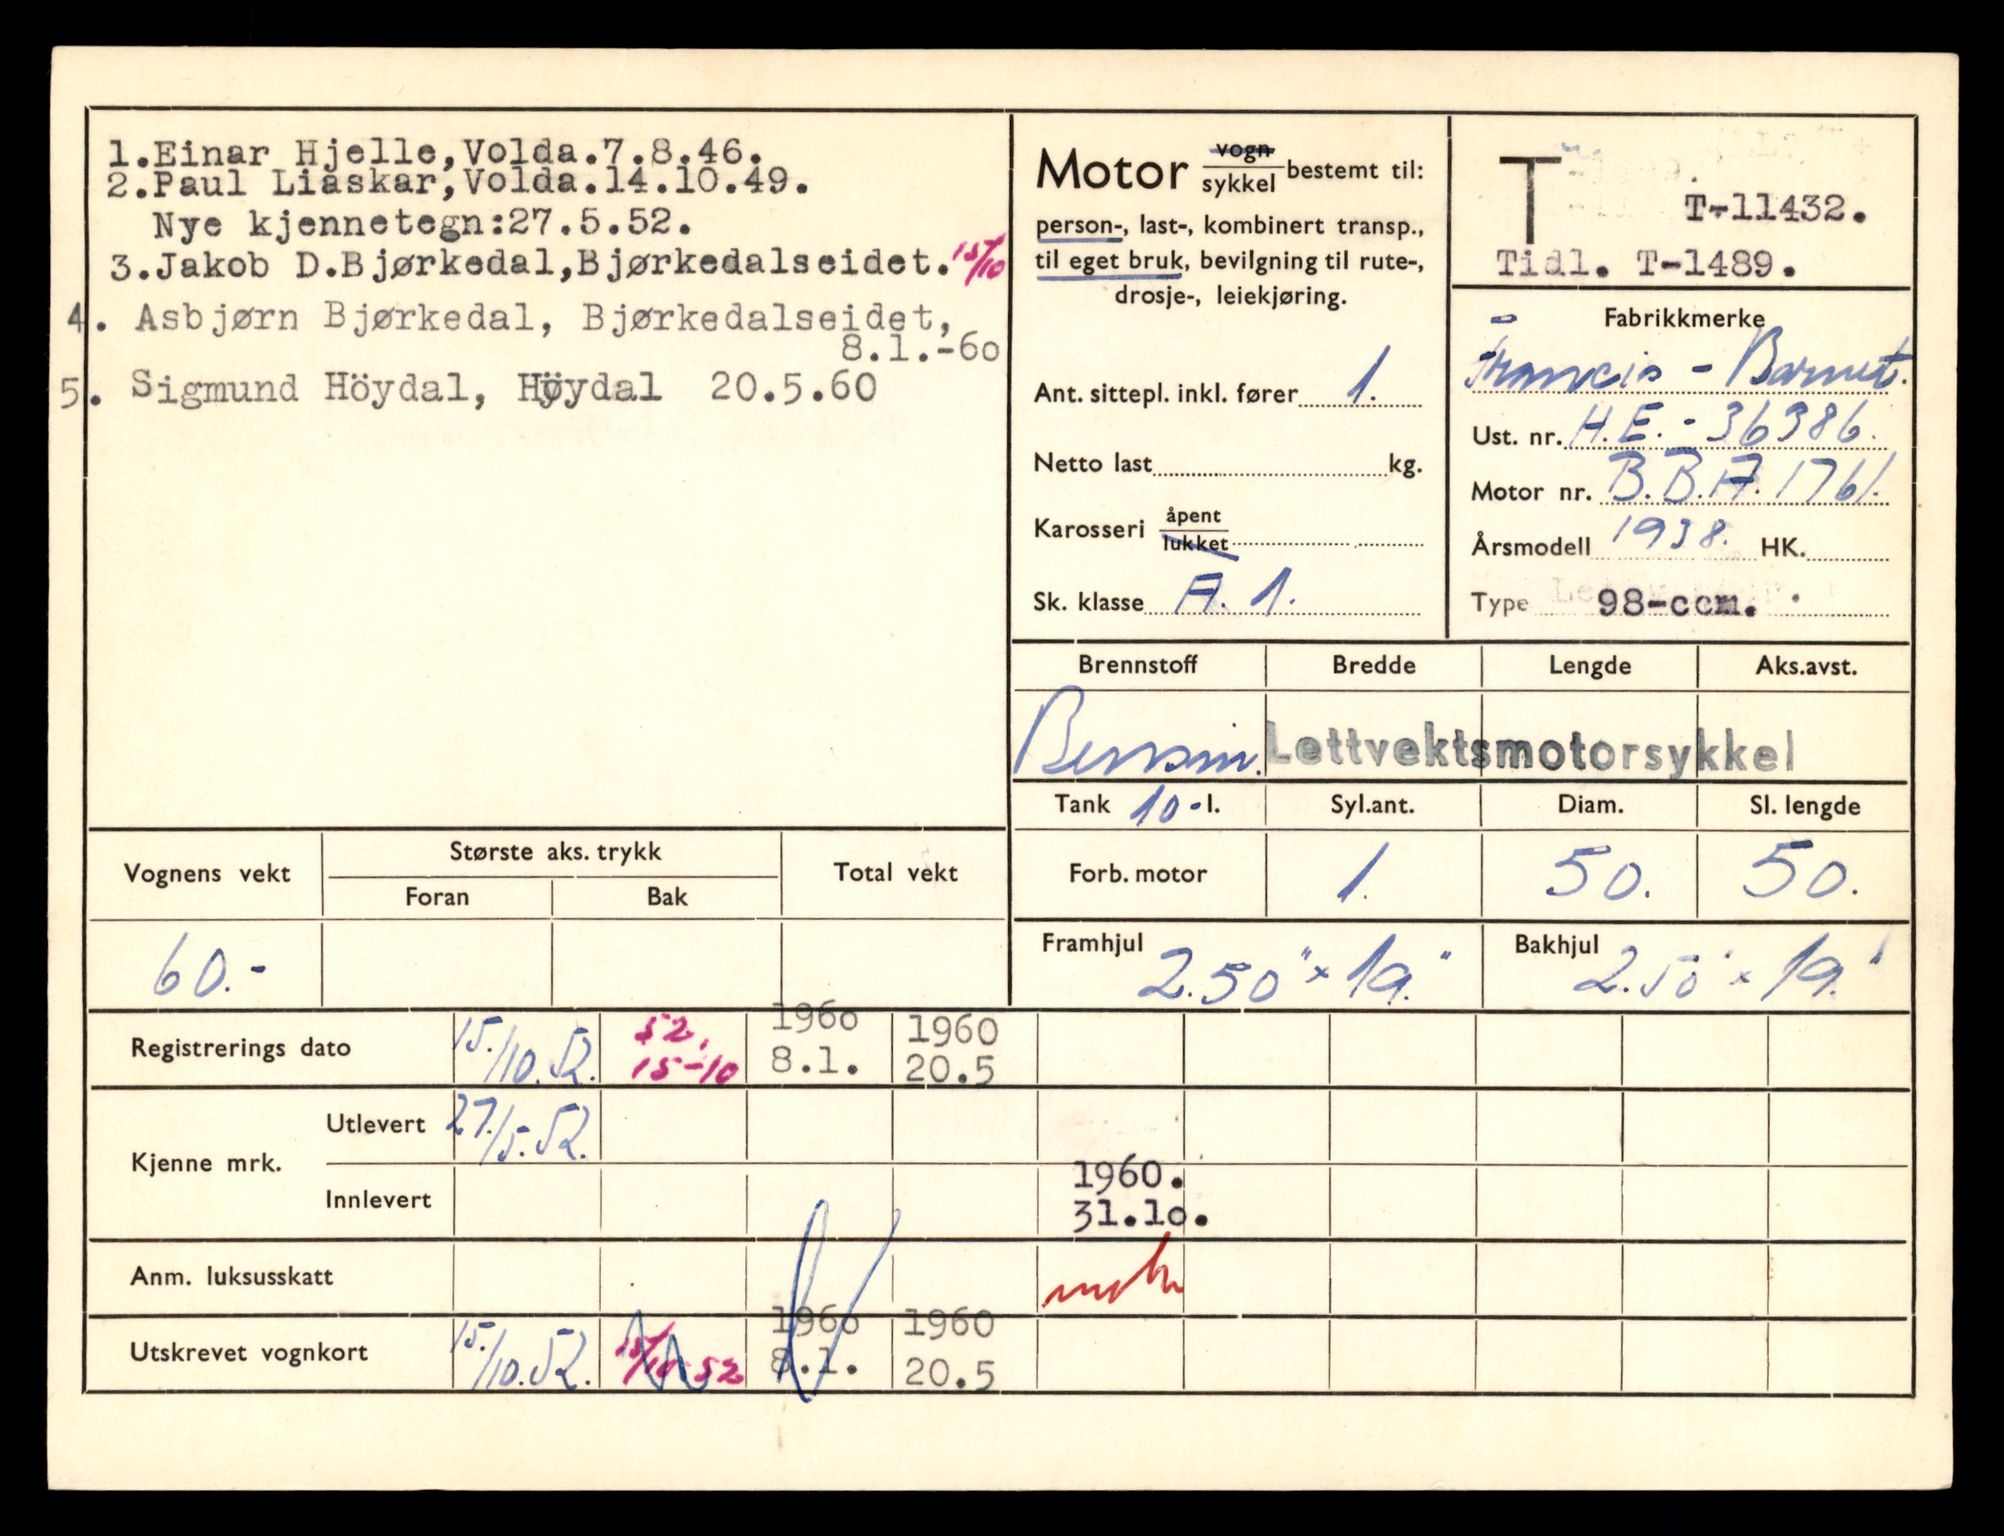 1.Einar Hjelle,Volda.7.8.46.
2.Paul Liaskar,Volda.14.10.49.
Nye kjennetegn:27.5.52.
3.Jakob D.Bjørkedal,Bjørkedalseidet. 15/10
4. Asbjørn Bjørkedal, Bjørkedalseidet,
8.1.-60
5. Sigmund Höydal, Høydal 20.5.60
Motor vogn/sykkel bestemt til:
person-, last-, kombinert transp.,
til eget bruk, bevilgning til rute-,
drosje-, leiekjøring.
Ant. sittepl. inkl. fører 1.
Netto last kg.
Karosseri åpent/lukket
Sk. klasse A. 1.
T T-11432.
Tidl. T-1489.
Fabrikkmerke
Francis - Barnet.
Ust. nr. H.E.-36386.
Motor nr. B.B.A. 1761.
Årsmodell 1938. HK.
Type 98-ccm.
Brennstoff Bredde Lengde Aks.avst.
Bensin. Lettvektsmotorsykkel
Tank 10-l. Syl.ant. Diam. Sl. lengde
Forb. motor 1. 50. 50.
Framhjul 2.50" x 19." Bakhjul 2.50" x 19."
Vognens vekt Største aks. trykk Total vekt
Foran Bak
60.-
Registrerings dato 15./10.52. 52. 15-10 1960 8.1. 1960 20.5
Kjenne mrk. Utlevert 27./5.52.
Innlevert 1960. 31.10.
Anm. luksusskatt
Utskrevet vognkort 15./10.52. 15/10 52 1960 8.1. 1960 20.5